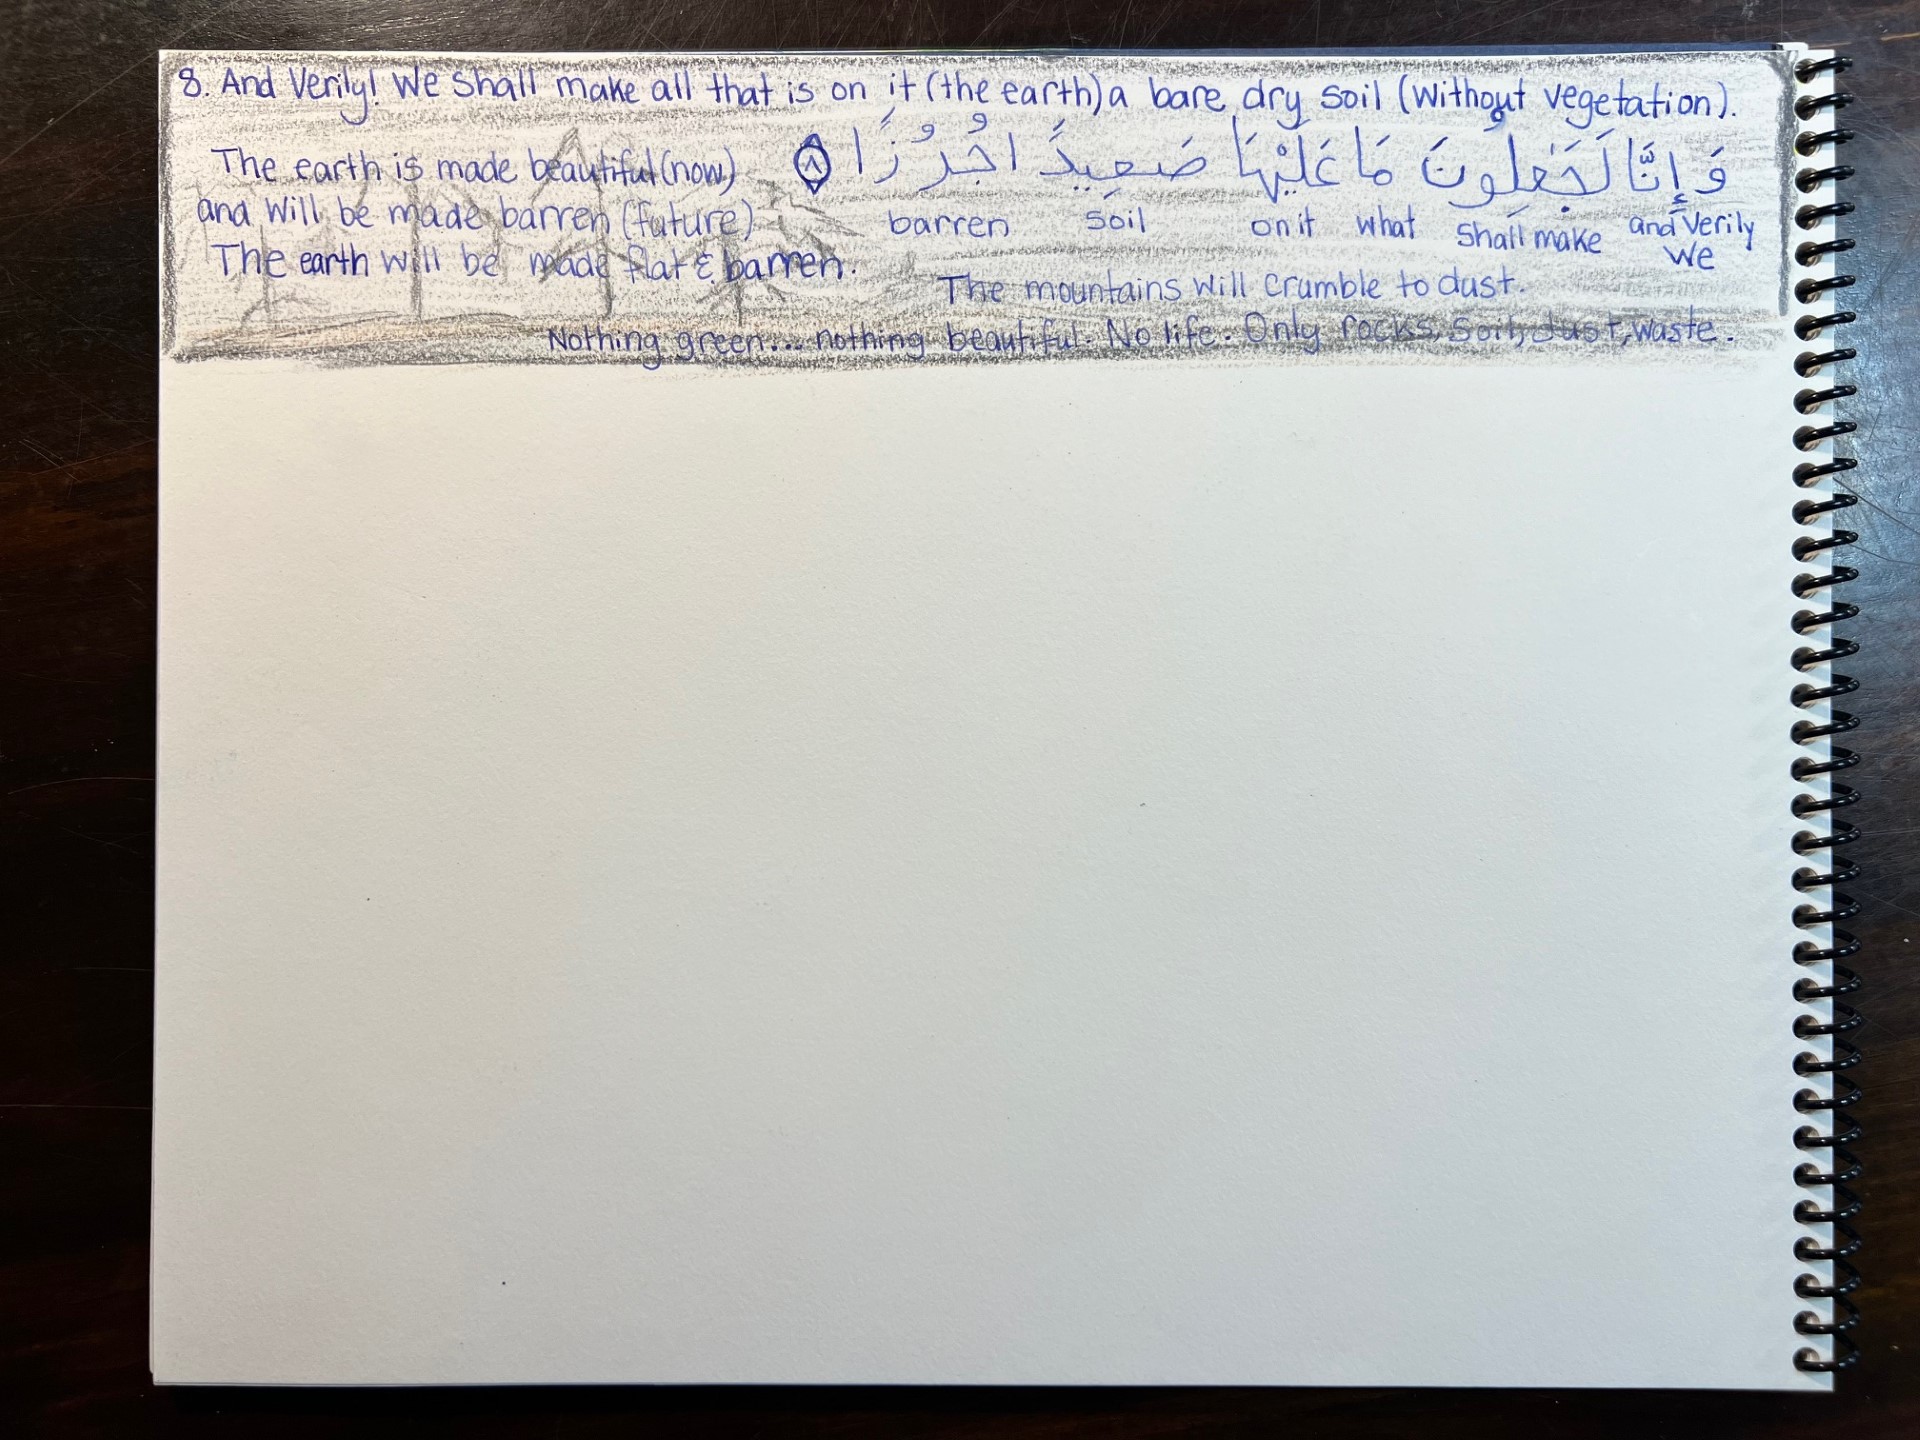 8. And Verily! We shall make all that is on it (the earth) a bare dry soil (without vegetation).
وَ إِنَّا لَجَٰعِلُونَ مَا عَلَيْهَا صَعِيدً ا جُرُ زًا ۸
The earth is made beautiful (now)
and will be made barren (future)
The earth will be made flat & barren.
and Verily We
shall make
what
on it
soil
barren
The mountains will crumble to dust.
Nothing green... nothing beautiful. No life. Only rocks, soil, dust, waste.